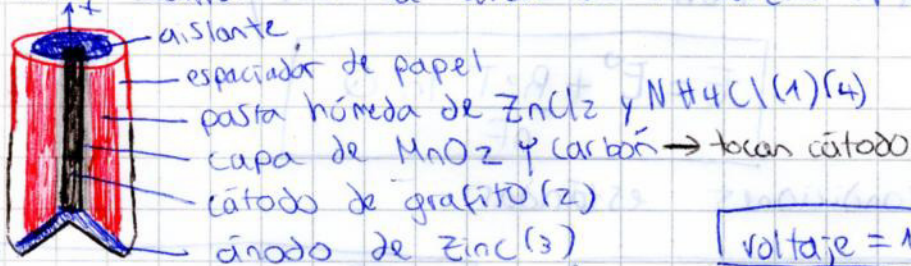 +
aislante
espaciador de papel
pasta húmeda de ZnCl2 y NH4Cl (1)(4)
capa de MnO2 y carbón → tocan cátodo
cátodo de grafito (2)
ánodo de zinc (3)
voltaje = 1